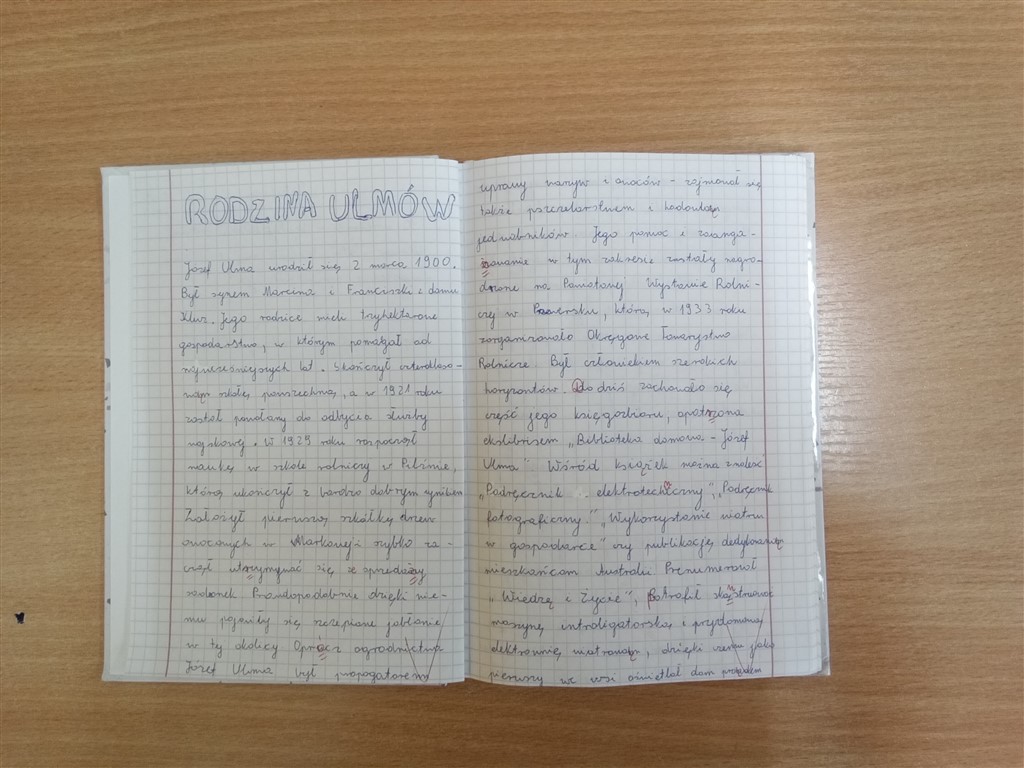 RODZINA ULMÓW
Józef Ulma urodził się 2 marca 1900.
Był synem Marcina i Franciszki z domu
Kluz. Jego rodzice mieli trzyhektarowe
gospodarstwo, w którym pomagał od
najwcześniejszych lat. Skończył czteroklaso-
wą szkołę powszechną, a w 1921 roku
został powołany do odbycia służby
wojskowej. W 1929 roku rozpoczął
naukę w szkole rolniczej w Pilźnie,
którą ukończył z bardzo dobrym wynikiem
Założył pierwszą szkółkę drzew
owocowych w Markowej i szybko za-
czął utrzymywać się ze sprzedaży
sadzonek Prawdopodobnie dzięki nie-
mu pojawiły się szczepione jabłonie
w tej okolicy Oprócz ogrodnictwa
Józef Ulma był propagatorem
uprawy warzyw i owoców - zajmował się
także pszczelarstwem i hodowlą
jedwabników. Jego pomoc i zaanga-
żowanie w tym zakresie zostały nagro-
dzone na Powiatowej Wystawie Rolni-
czej w Przeworsku, którą w 1933 roku
zorganizowało Okręgowe Towarzystwo
Rolnicze. Był człowiekiem szerokich
horyzontów. Do dziś zachowało się
część jego księgozbioru, opatrzona
ekslibrisem „Biblioteka domowa - Józef
Ulma" Wśród książek można znaleść
„Podręcznik elektrotechniczny", „Podręcznik
fotograficzny.", „Wykorzystanie wiatru
w gospodarce" czy publikację dedykowaną
mieszkańcom Australii Prenumerował
„Wiedzę i Życie", Potrafił skonstruować
maszynę introligatorską i przydomową
elektrownię wiatrową, dzięki czemu jako
pierwszy we wsi oświetlał dom prądem